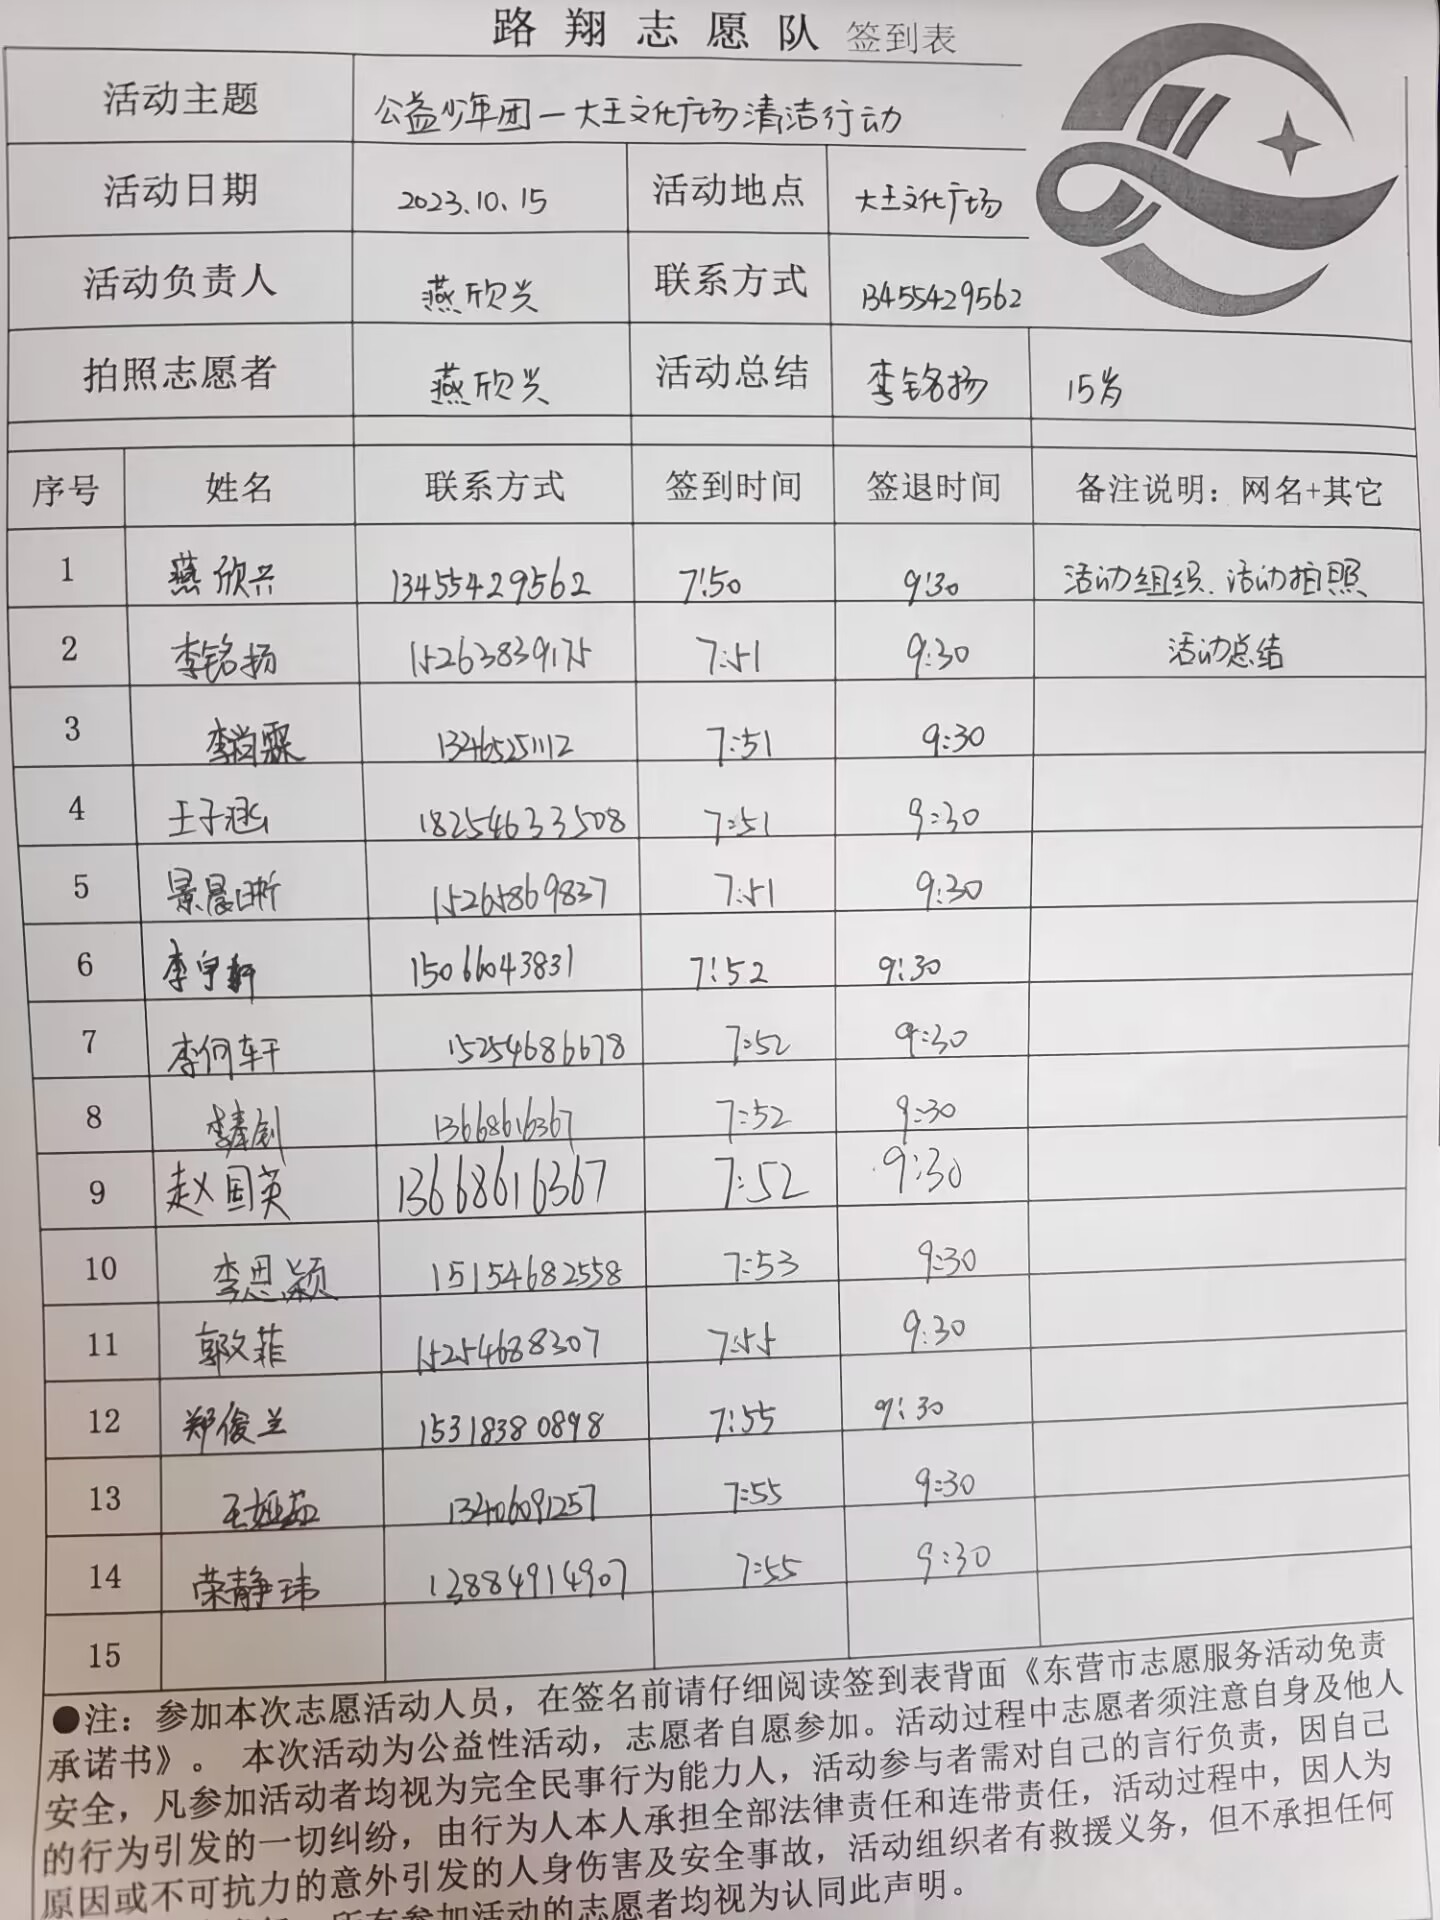 路翔志愿队 签到表
活动主题 公益少年团一大王文化广场清洁行动
活动日期 2023.10.15 活动地点 大王文化广场
活动负责人 燕欣兴 联系方式 13455429562
拍照志愿者 燕欣兴 活动总结 李铭扬 15岁
序号 姓名 联系方式 签到时间 签退时间 备注说明：网名+其它
1 燕欣兴 13455429562 7:50 9:30 活动组织、活动拍照
2 李铭扬 15263839175 7:51 9:30 活动总结
3 13465251112 7:51 9:30
4 王子涵 18254633508 7:51 9:30
5 景晨昕 15265869837 7:51 9:30
6 李宇轩 15066043831 7:52 9:30
7 李何轩 15254686678 7:52 9:30
8 13668616367 7:52 9:30
9 赵国英 13668616367 7:52 9:30
10 李思颖 15154682558 7:53 9:30
11 郭文菲 15254688307 7:55 9:30
12 郑俊兰 15318380898 7:55 9:30
13 王娅茹 13406091257 7:55 9:30
14 荣静玮 13884914907 7:55 9:30
15
●注：参加本次志愿活动人员，在签名前请仔细阅读签到表背面《东营市志愿服务活动免责
承诺书》。 本次活动为公益性活动，志愿者自愿参加。活动过程中志愿者须注意自身及他人
安全，凡参加活动者均视为完全民事行为能力人，活动参与者需对自己的言行负责，因自己
的行为引发的一切纠纷，由行为人本人承担全部法律责任和连带责任，活动过程中，因人为
原因或不可抗力的意外引发的人身伤害及安全事故，活动组织者有救援义务，但不承担任何
所有参加活动的志愿者均视为认同此声明。